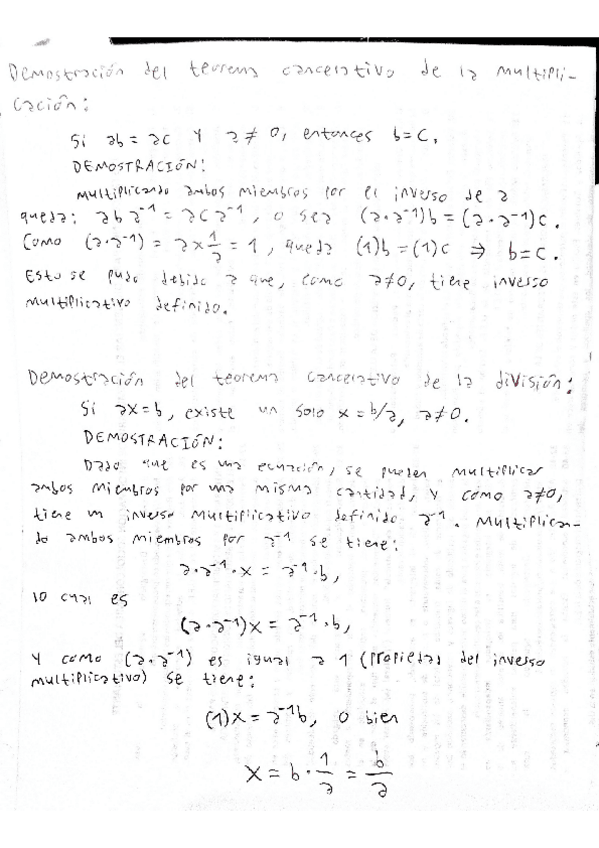 Demostración del teorema cancelativo de la multipli-
cación:
Si ab = ac y a ≠ 0, entonces b = c.
DEMOSTRACIÓN:
Multiplicando ambos miembros por el inverso de a
queda: ab a⁻¹ = ac a⁻¹, o sea (a·a⁻¹)b = (a·a⁻¹)c.
Como (a·a⁻¹) = a x 1/a = 1, queda (1)b = (1)c ⇒ b = c.
Esto se pudo debido a que, como a≠0, tiene inverso
multiplicativo definido.
Demostración del teorema cancelativo de la división:
Si ax = b, existe un solo x = b/a, a≠0.
DEMOSTRACIÓN:
Dado que es una ecuación, se pueden multiplicar
ambos miembros por una misma cantidad, y como a≠0,
tiene un inverso multiplicativo definido a⁻¹. Multiplican-
do ambos miembros por a⁻¹ se tiene:
a·a⁻¹·x = a⁻¹·b,
lo cual es
(a·a⁻¹)x = a⁻¹·b,
y como (a·a⁻¹) es igual a 1 (propiedad del inverso
multiplicativo) se tiene:
(1)x = a⁻¹b, o bien
x = b · 1/a = b/a